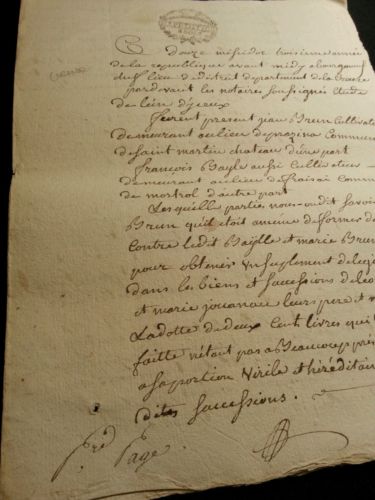 Ce douze messidor troisieme année
de la republique avant midy a bourganeuf
chef lieu de district departement de la Creuse
pardevant les notaires soussignés
de lieu
furent present jean Brun Cultivateur
demeurant au lieu de commune
de saint martin chateau d'une part
françois Bayle aussi Cultivateur
demeurant au lieu de commune
de d'autre part
Lesquelle parties nous ont dit savoir
Brun qu'il étoit amene de former de
Contre ledit Baylle et marie Brun
pour obtenir un suplement de
dans les biens et successions de
et marie leurs pere et
La dotte de deux Cents livres qui
faitte n'étant pas a Beaucoup prés
a sa portion virile et héréditaire
dites successions.
page